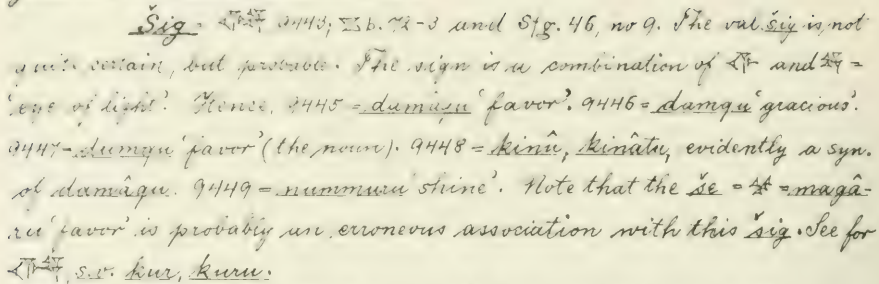 Šig. 𒅆𒂟 9443; Sb. 72-3 and Sfg. 46, no 9. The val. šig is, not
quite certain, but probable. The sign is a combination of 𒅆 and 𒂟 =
'eye of light'. Hence, 9445 = damâqu 'favor'. 9446 = damqu 'gracious'.
9447 = dumqu 'favor' (the noun). 9448 = kinû, kinâtu, evidently a syn.
of damâqu. 9449 = nummuru 'shine'. Note that the še = = magâ-
ru 'favor' is probably an erroneous association with this šig. See for
s.v. kur, kuru.